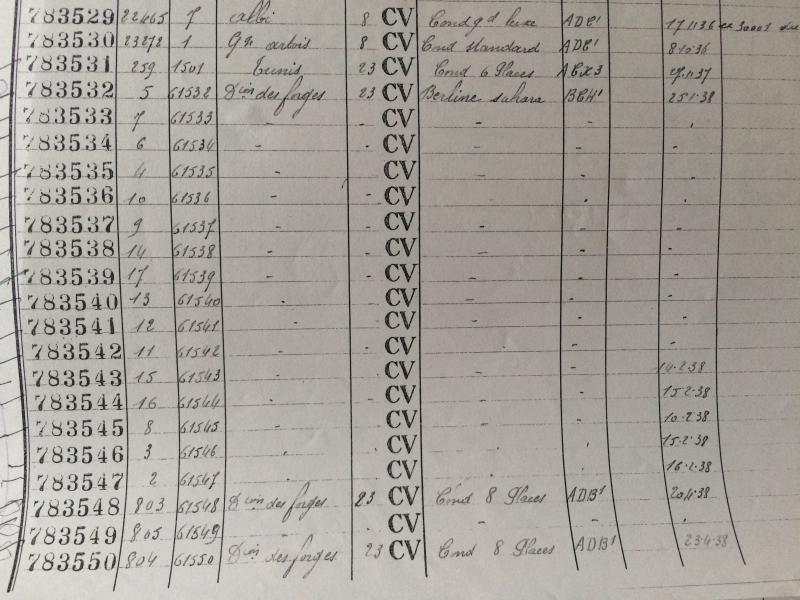 783529 22465 7 albi 8 CV Cond gd luxe ADC1 17.11.36 ex 30001
783530 23272 1 Gn artois 8 CV Cnd standard ADC1 8.10.36
783531 259 1501 Tunis 23 CV Cnd 6 Places ACX3
783532 5 61532 Dion des forges 23 CV Berline sahara BCH1 25.1.38
783533 7 61533 - - CV - -
783534 6 61534 - - CV - - -
783535 4 61535 - - CV - - -
783536 10 61536 - - CV - - -
783537 9 61537 - - CV - - -
783538 14 61538 - - CV - - -
783539 17 61539 - - CV - - -
783540 13 61540 - - CV - - -
783541 12 61541 - - CV - - -
783542 11 61542 - - CV - - -
783543 15 61543 - - CV - - 14.2.38
783544 16 61544 - - CV - - 15.2.38
783545 8 61545 - - CV - - 10.2.38
783546 3 61546 - - CV - - 15.2.38
783547 2 61547 - - CV - - 16.2.38
783548 803 61548 Dion des forges 23 CV Cnd 8 Places ADB1 20.4.38
783549 805 61549 - - CV - - -
783550 804 61550 Dion des forges 23 CV Cnd 8 Places ADB1 23.4.38